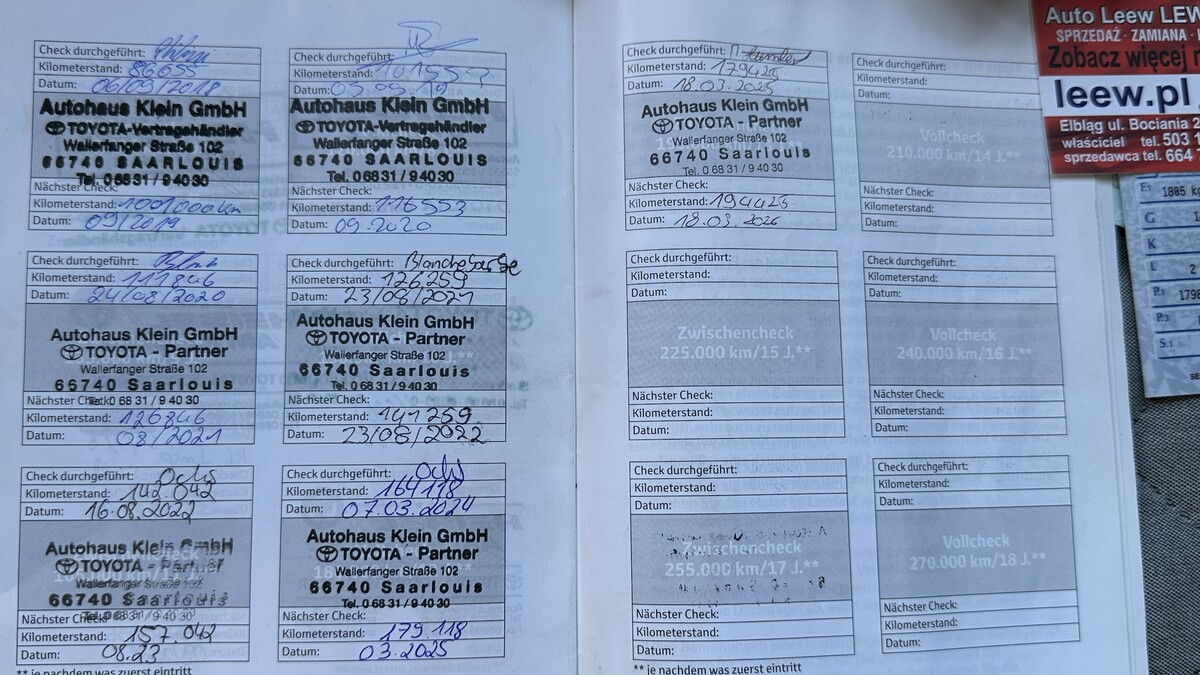 Check durchgeführt:
Kilometerstand: 86055
Datum: 06/09/2018
Autohaus Klein GmbH
TOYOTA-Vertragshändler
Wallerfanger Straße 102
66740 SAARLOUIS
Tel. 0 68 31 / 9 40 30
Nächster Check:
Kilometerstand: 1001000 km
Datum: 09/2019
Check durchgeführt:
Kilometerstand: 101553
Datum: 03.09.19
Autohaus Klein GmbH
TOYOTA-Vertragshändler
Wallerfanger Straße 102
66740 SAARLOUIS
Tel. 0 68 31 / 9 40 30
Nächster Check:
Kilometerstand: 116553
Datum: 09.2020
Check durchgeführt:
Kilometerstand: 111846
Datum: 24/08/2020
Autohaus Klein GmbH
TOYOTA - Partner
Wallerfanger Straße 102
66740 Saarlouis
Tel. 0 68 31 / 9 40 30
Nächster Check:
Kilometerstand: 126846
Datum: 08/2021
Check durchgeführt:
Kilometerstand: 126259
Datum: 23/08/2021
Autohaus Klein GmbH
TOYOTA - Partner
Wallerfanger Straße 102
66740 Saarlouis
Tel. 0 68 31 / 9 40 30
Nächster Check:
Kilometerstand: 141259
Datum: 23/08/2022
Check durchgeführt: Ochs
Kilometerstand: 142.042
Datum: 16.08.2022
Autohaus Klein GmbH
TOYOTA - Partner
Wallerfanger Straße 102
66740 Saarlouis
Tel. 0 68 31 / 9 40 30
Nächster Check:
Kilometerstand: 157.042
Datum: 08.23
Check durchgeführt: Ochs
Kilometerstand: 164118
Datum: 07.03.2024
Autohaus Klein GmbH
TOYOTA - Partner
Wallerfanger Straße 102
66740 Saarlouis
Tel. 0 68 31 / 9 40 30
Nächster Check:
Kilometerstand: 179 118
Datum: 03.2025
** je nachdem was zuerst eintritt
Check durchgeführt:
Kilometerstand: 179425
Datum: 18.03.2025
Autohaus Klein GmbH
TOYOTA - Partner
Wallerfanger Straße 102
66740 Saarlouis
Tel. 0 68 31 / 9 40 30
Nächster Check:
Kilometerstand: 194425
Datum: 18.03.2026
Check durchgeführt:
Kilometerstand:
Datum:
Vollcheck
210.000 km/14 J.**
Nächster Check:
Kilometerstand:
Datum:
Check durchgeführt:
Kilometerstand:
Datum:
Zwischencheck
225.000 km/15 J.**
Nächster Check:
Kilometerstand:
Datum:
Check durchgeführt:
Kilometerstand:
Datum:
Vollcheck
240.000 km/16 J.**
Nächster Check:
Kilometerstand:
Datum:
Check durchgeführt:
Kilometerstand:
Datum:
Zwischencheck
255.000 km/17 J.**
Nächster Check:
Kilometerstand:
Datum:
Check durchgeführt:
Kilometerstand:
Datum:
Vollcheck
270.000 km/18 J.**
Nächster Check:
Kilometerstand:
Datum:
** je nachdem was zuerst eintritt
Auto Leew LEW
SPRZEDAŻ · ZAMIANA ·
Zobacz więcej
leew.pl
Elbląg ul. Bociania 2
właściciel tel. 503
sprzedawca tel. 664
1805
G
K
L 2
P.1
P.3
S.1